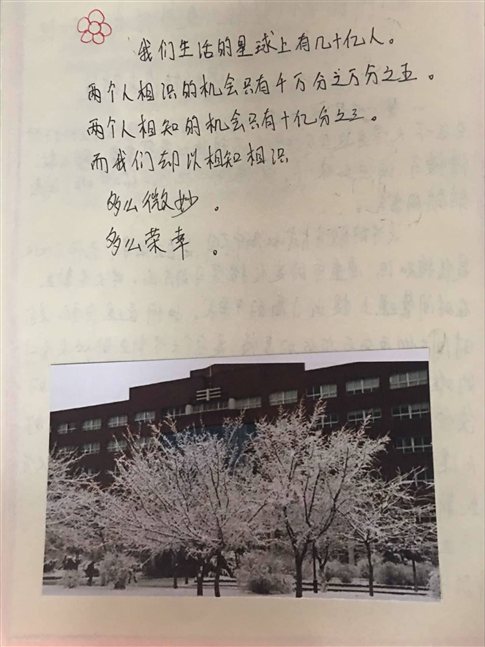 我们生活的星球上有几十亿人。
两个人相识的机会只有千万分之万分之五。
两个人相知的机会只有十亿分之三。
而我们却以相知相识
多么微妙。
多么荣幸。